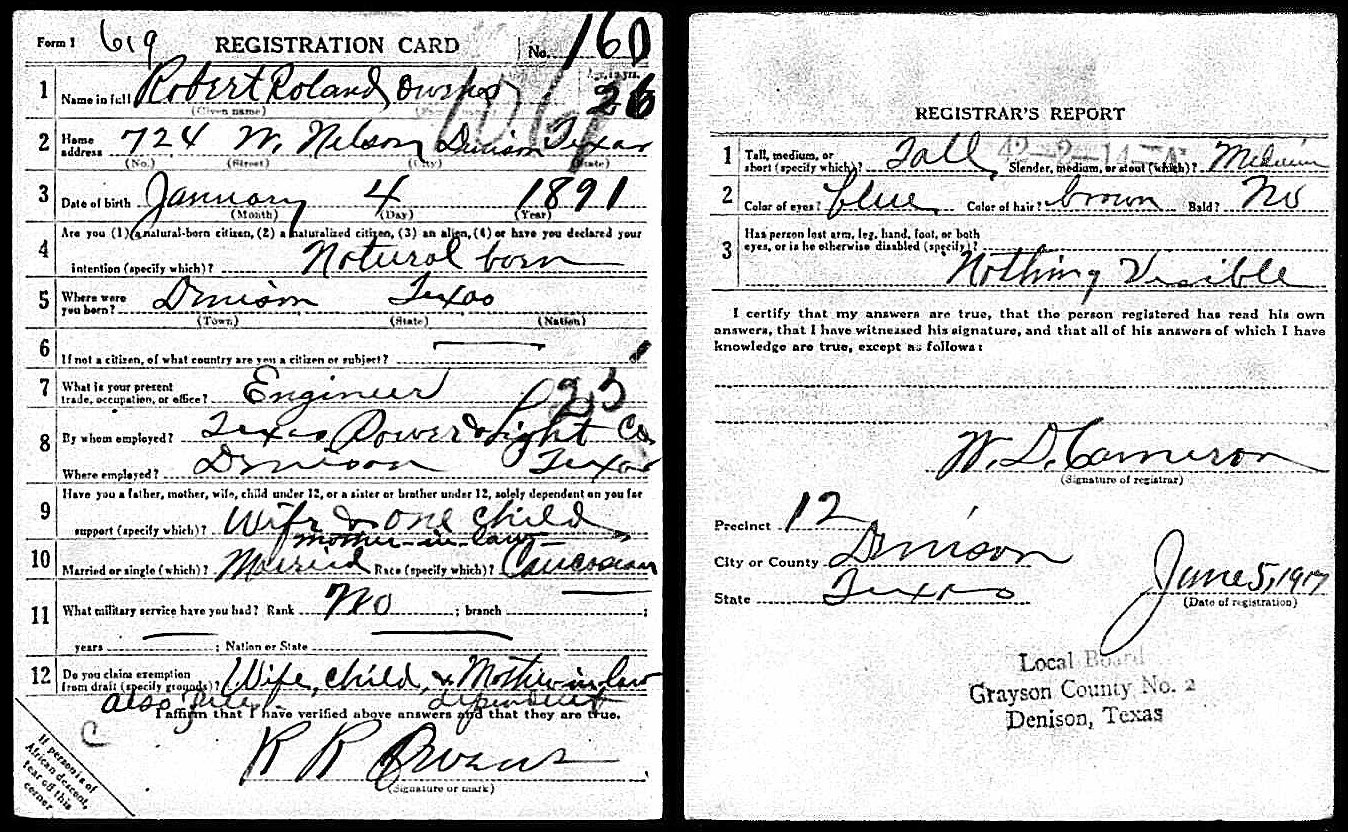 Form 1 619 REGISTRATION CARD No. 160
1 Name in full Robert Roland Owens Age, in yrs. 26
(Given name) (Family name)
2 Home address 724 W. Nelson Denison Texas
(No.) (Street) (City) (State)
3 Date of birth January 4 1891
(Month) (Day) (Year)
4 Are you (1) a natural-born citizen, (2) a naturalized citizen, (3) an alien, (4) or have you declared your
intention (specify which)? Natural born
5 Where were you born? Denison Texas
(Town) (State) (Nation)
6 If not a citizen, of what country are you a citizen or subject?
7 What is your present trade, occupation, or office? Engineer 25
8 By whom employed? Texas Power & Light Co.
Where employed? Denison Texas
9 Have you a father, mother, wife, child under 12, or a sister or brother under 12, solely dependent on you for
support (specify which)? Wife & one child
mother-in-law
10 Married or single (which)? Married Race (specify which)? Caucasian
11 What military service have you had? Rank No ; branch ;
years ; Nation or State
12 Do you claim exemption from draft (specify grounds)? Wife, child, & Mother-in-law
also dependent
I affirm that I have verified above answers and that they are true.
C R R Owens
(Signature or mark)
If person is of
African descent,
tear off this
corner
REGISTRAR'S REPORT
42-2-14-A
1 Tall, medium, or short (specify which)? Tall Slender, medium, or stout (which)? Medium
2 Color of eyes? blue Color of hair? brown Bald? No
3 Has person lost arm, leg, hand, foot, or both
eyes, or is he otherwise disabled (specify)?
Nothing Visible
I certify that my answers are true, that the person registered has read his own
answers, that I have witnessed his signature, and that all of his answers of which I have
knowledge are true, except as follows:
W. D. Cameron
(Signature of registrar)
Precinct 12
City or County Denison
State Texas
June 5, 1917
(Date of registration)
Local Board
Grayson County No. 2
Denison, Texas